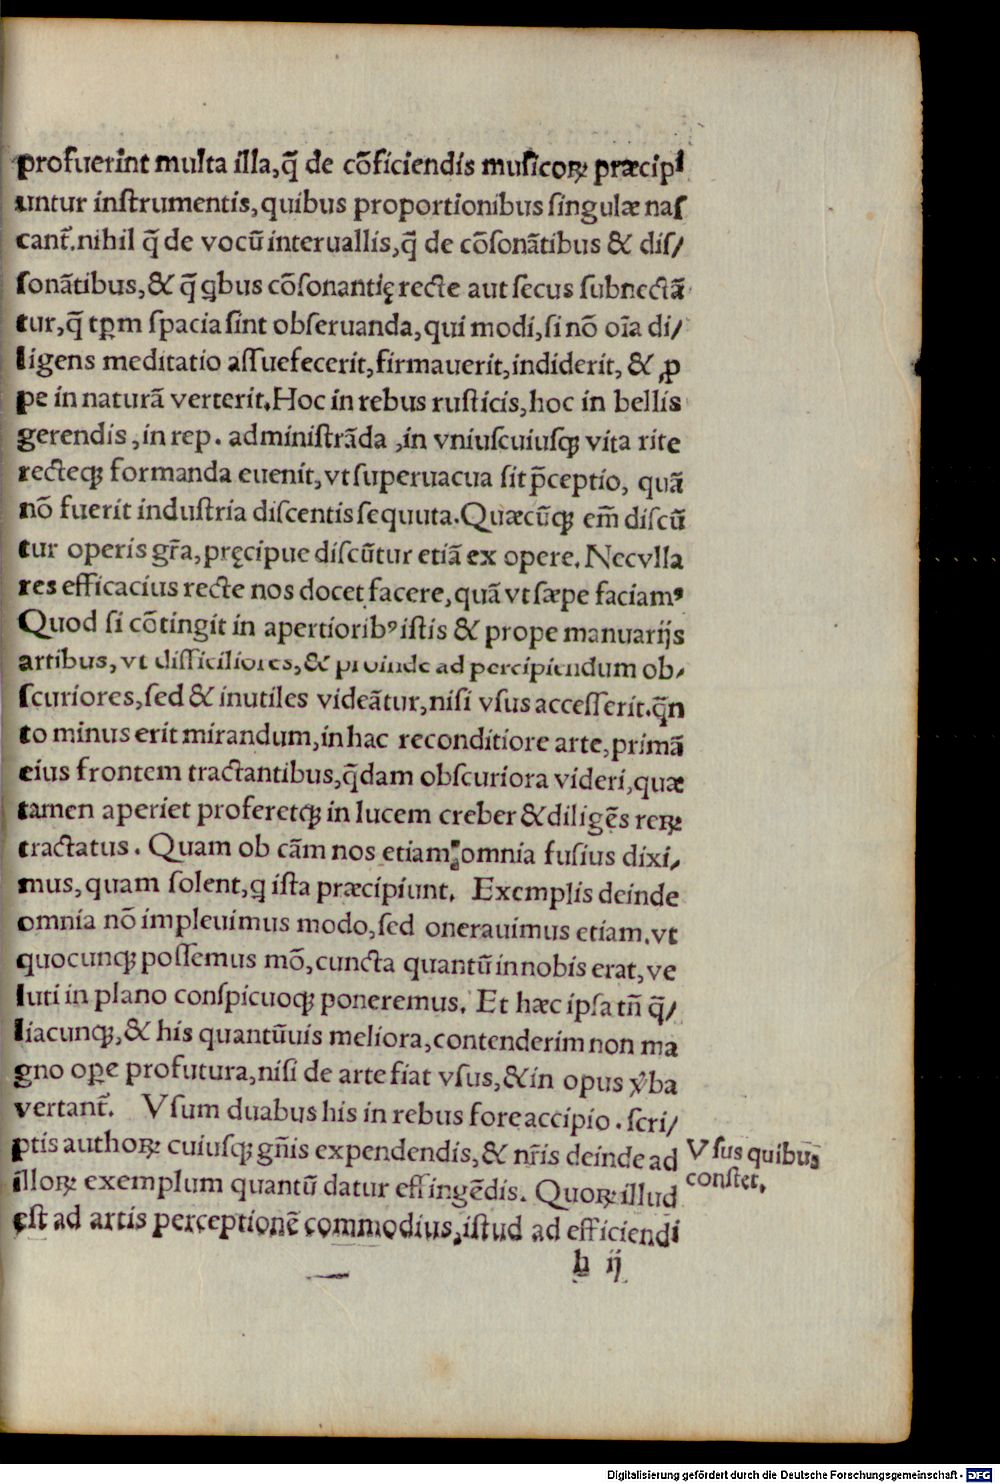 profuerint multa illa, q̃ de cõficiendis musicoꝝ præcipi
untur instrumentis, quibus proportionibus singulæ nas
cant᷑. nihil q̃ de vocũ interuallis, q̃ de cõsonãtibus & dis/
sonãtibus, & q̃ ꝗbus cõsonantię recte aut secus subnectã
tur, q̃ tꝑm spacia sint obseruanda, qui modi, si nõ oĩa di/
ligens meditatio assuefecerit, firmauerit, indiderit, & ꝓ
pe in naturã verterit. Hoc in rebus rusticis, hoc in bellis
gerendis, in rep. administrãda, in vniuscuiusqꝫ vita rite
recteqꝫ formanda euenit, vt superuacua sit p̃ceptio, quã
nõ fuerit industria discentis sequuta. Quæcũqꝫ em̃ discũ
tur operis gr̃a, pręcipue discũtur etiã ex opere. Nec vlla
res efficacius recte nos docet facere, quã vt sæpe faciamꝰ
Quod si cõtingit in apertioribꝰ istis & prope manuarijs
artibus, vt difficiliores, & proinde ad percipiendum ob/
scuriores, sed & inutiles videãtur, nisi vsus accesserit. q̃n
to minus erit mirandum, in hac reconditiore arte, primã
eius frontem tractantibus, q̃dam obscuriora videri, quæ
tamen aperiet proferetqꝫ in lucem creber & diligẽs reꝝ
tractatus. Quam ob cãm nos etiam omnia fusius dixi/
mus, quam solent, ꝗ ista præcipiunt. Exemplis deinde
omnia nõ impleuimus modo, sed onerauimus etiam. vt
quocunqꝫ possemus mõ, cuncta quantũ in nobis erat, ve
luti in plano conspicuoqꝫ poneremus. Et hæc ipsa tñ q̃/
liacunqꝫ, & his quantũuis meliora, contenderim non ma
gno oꝑe profutura, nisi de arte fiat vsus, & in opus ṽba
vertant᷑. Vsum duabus his in rebus fore accipio. scri/
ptis authoꝝ cuiusqꝫ gñis expendendis, & nr̃is deinde ad
illoꝝ exemplum quantũ datur effingẽdis. Quoꝝ illud
est ad artis perceptionẽ commodius, istud ad efficiendi
Vsus quibus
constet.
h ij
Digitalisierung gefördert durch die Deutsche Forschungsgemeinschaft - DFG